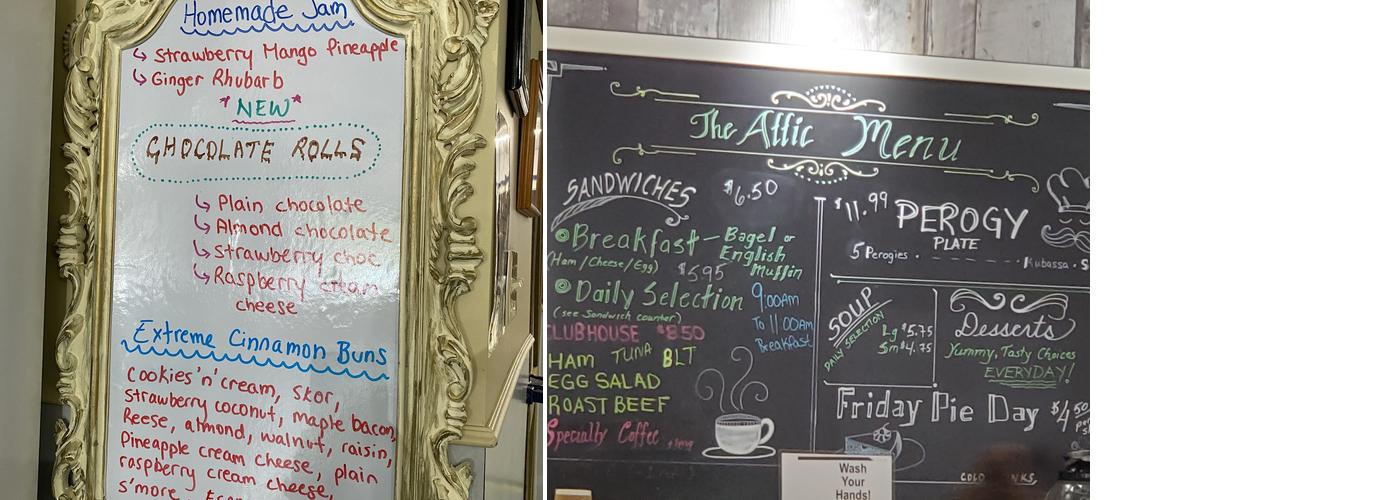 Homemade Jam
Strawberry Mango Pineapple
Ginger Rhubarb
*NEW*
CHOCOLATE ROLLS
Plain chocolate
Almond chocolate
Strawberry choc
Raspberry cream
cheese
Extreme Cinnamon Buns
Cookies'n'cream, Skor,
Strawberry coconut, maple bacon,
Reese, almond, walnut, raisin,
Pineapple cream cheese, plain
raspberry cream cheese,
s'more,
The Attic Menu
SANDWICHES $6.50
Breakfast - Bagel or
English
Muffin
(Ham/Cheese/Egg) $5.95
Daily Selection
(see Sandwich counter)
9:00AM
To 11:00AM
Breakfast
CLUBHOUSE $8.50
HAM TUNA BLT
EGG SALAD
ROAST BEEF
Specialty Coffee
$11.99 PEROGY
PLATE
5 Perogies Kubassa
SOUP
DAILY SELECTION
Lg $5.75
Sm $4.75
Desserts
Yummy, Tasty Choices
EVERYDAY!
Friday Pie Day $4.50
COLD
Wash
Your
Hands!